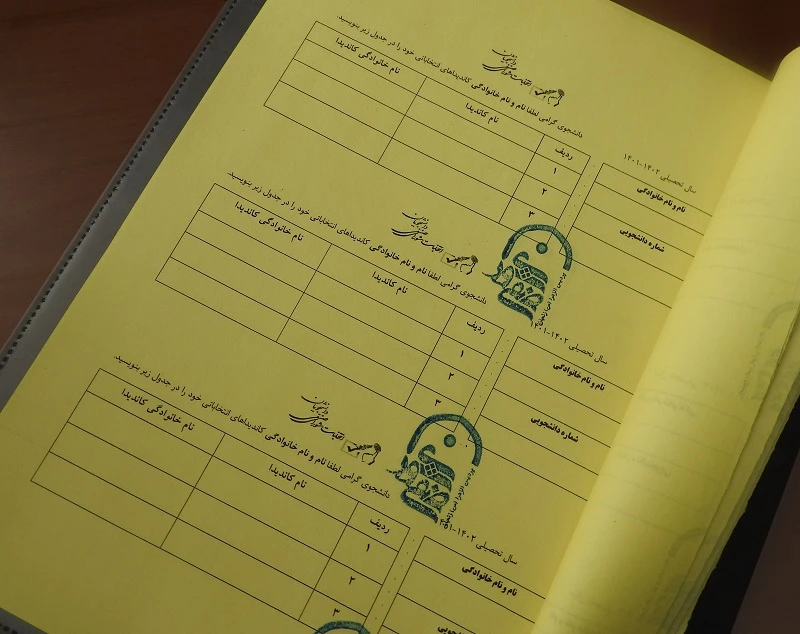 سال تحصیلی ۱۴۰۲-۱۴۰۱
نام و نام خانوادگی
شماره دانشجویی
دانشجوی گرامی لطفا نام و نام خانوادگی کاندیداهای انتخاباتی خود را در جدول زیر بنویسید.
ردیف نام کاندیدا نام خانوادگی کاندیدا
۱
۲
۳
سال تحصیلی ۱۴۰۲-۱۴۰۱
نام و نام خانوادگی
شماره دانشجویی
دانشجوی گرامی لطفا نام و نام خانوادگی کاندیداهای انتخاباتی خود را در جدول زیر بنویسید.
ردیف نام کاندیدا نام خانوادگی کاندیدا
۱
۲
۳
سال تحصیلی ۱۴۰۲-۱۴۰۱
نام و نام خانوادگی
دانشجویی
دانشجوی گرامی لطفا نام و نام خانوادگی کاندیداهای انتخاباتی خود را در جدول زیر بنویسید.
ردیف نام کاندیدا نام خانوادگی کاندیدا
۱
۲
۳